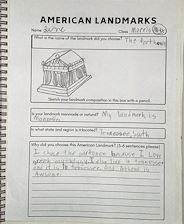 AMERICAN LANDMARKS
Name Class Morris
What is the name of the landmark did you choose? The Parthenon
Sketch your landmark composition in the box with a pencil.
Is your landmark manmade or natural? My landmark is
Manmade.
In what state and region is it located? Tennessee, South
Why did you choose this American Landmark? (3-6 sentences please)
I chose the parthenon because I Love
greek mythology.
and it is in Tennessee. And Athena is
Awesome.